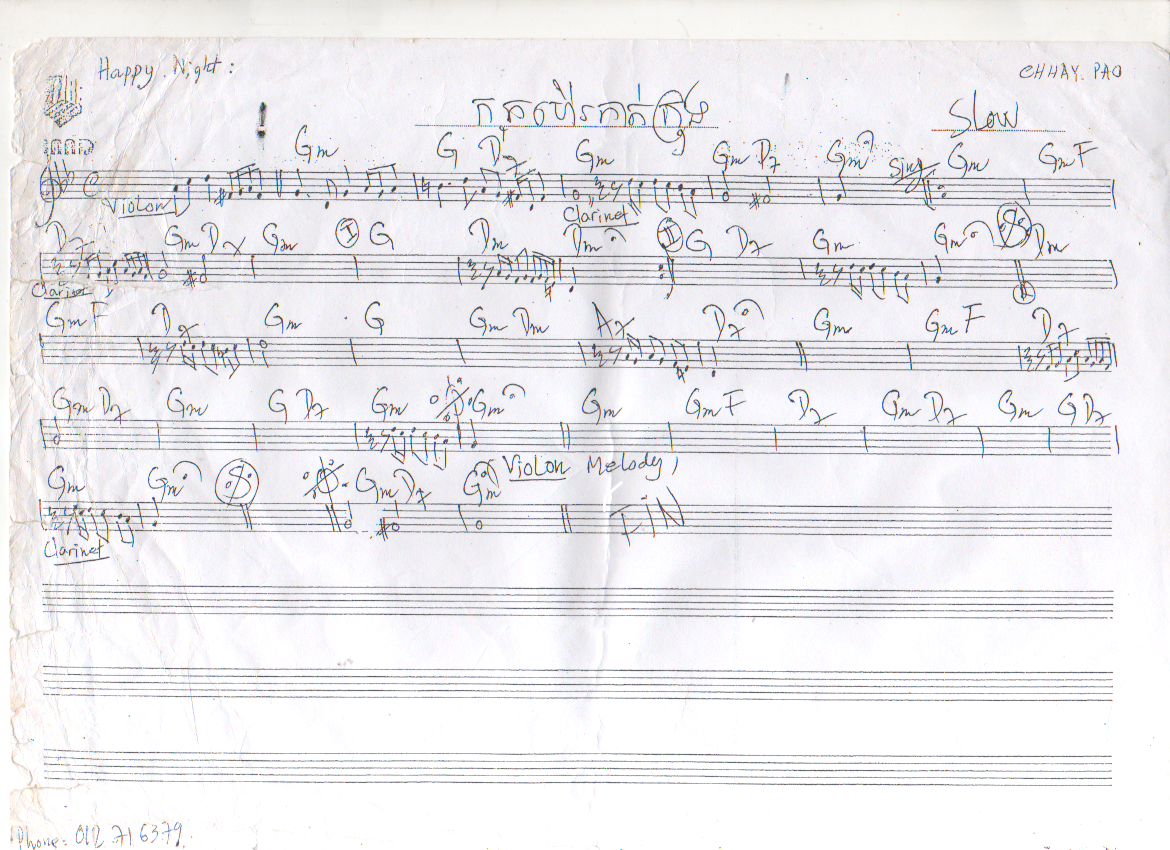 Happy Night :
CHHAY. PAO
Slow
Gm G D7 Gm Gm D7 Gm Sing Gm Gm F
Violon
Clarinet
D7 Gm D7 Gm I G Dm Dm II G D7 Gm Gm Dm
Clarinet
Gm F D7 Gm G Gm Dm A7 D7 Gm Gm F D7
Gm D7 Gm G D7 Gm Gm Gm Gm F D7 Gm D7 Gm G D7
Violon Melody
Gm Gm Gm D7 Gm
FIN
Clarinet
Phone: 012 71 63 79.